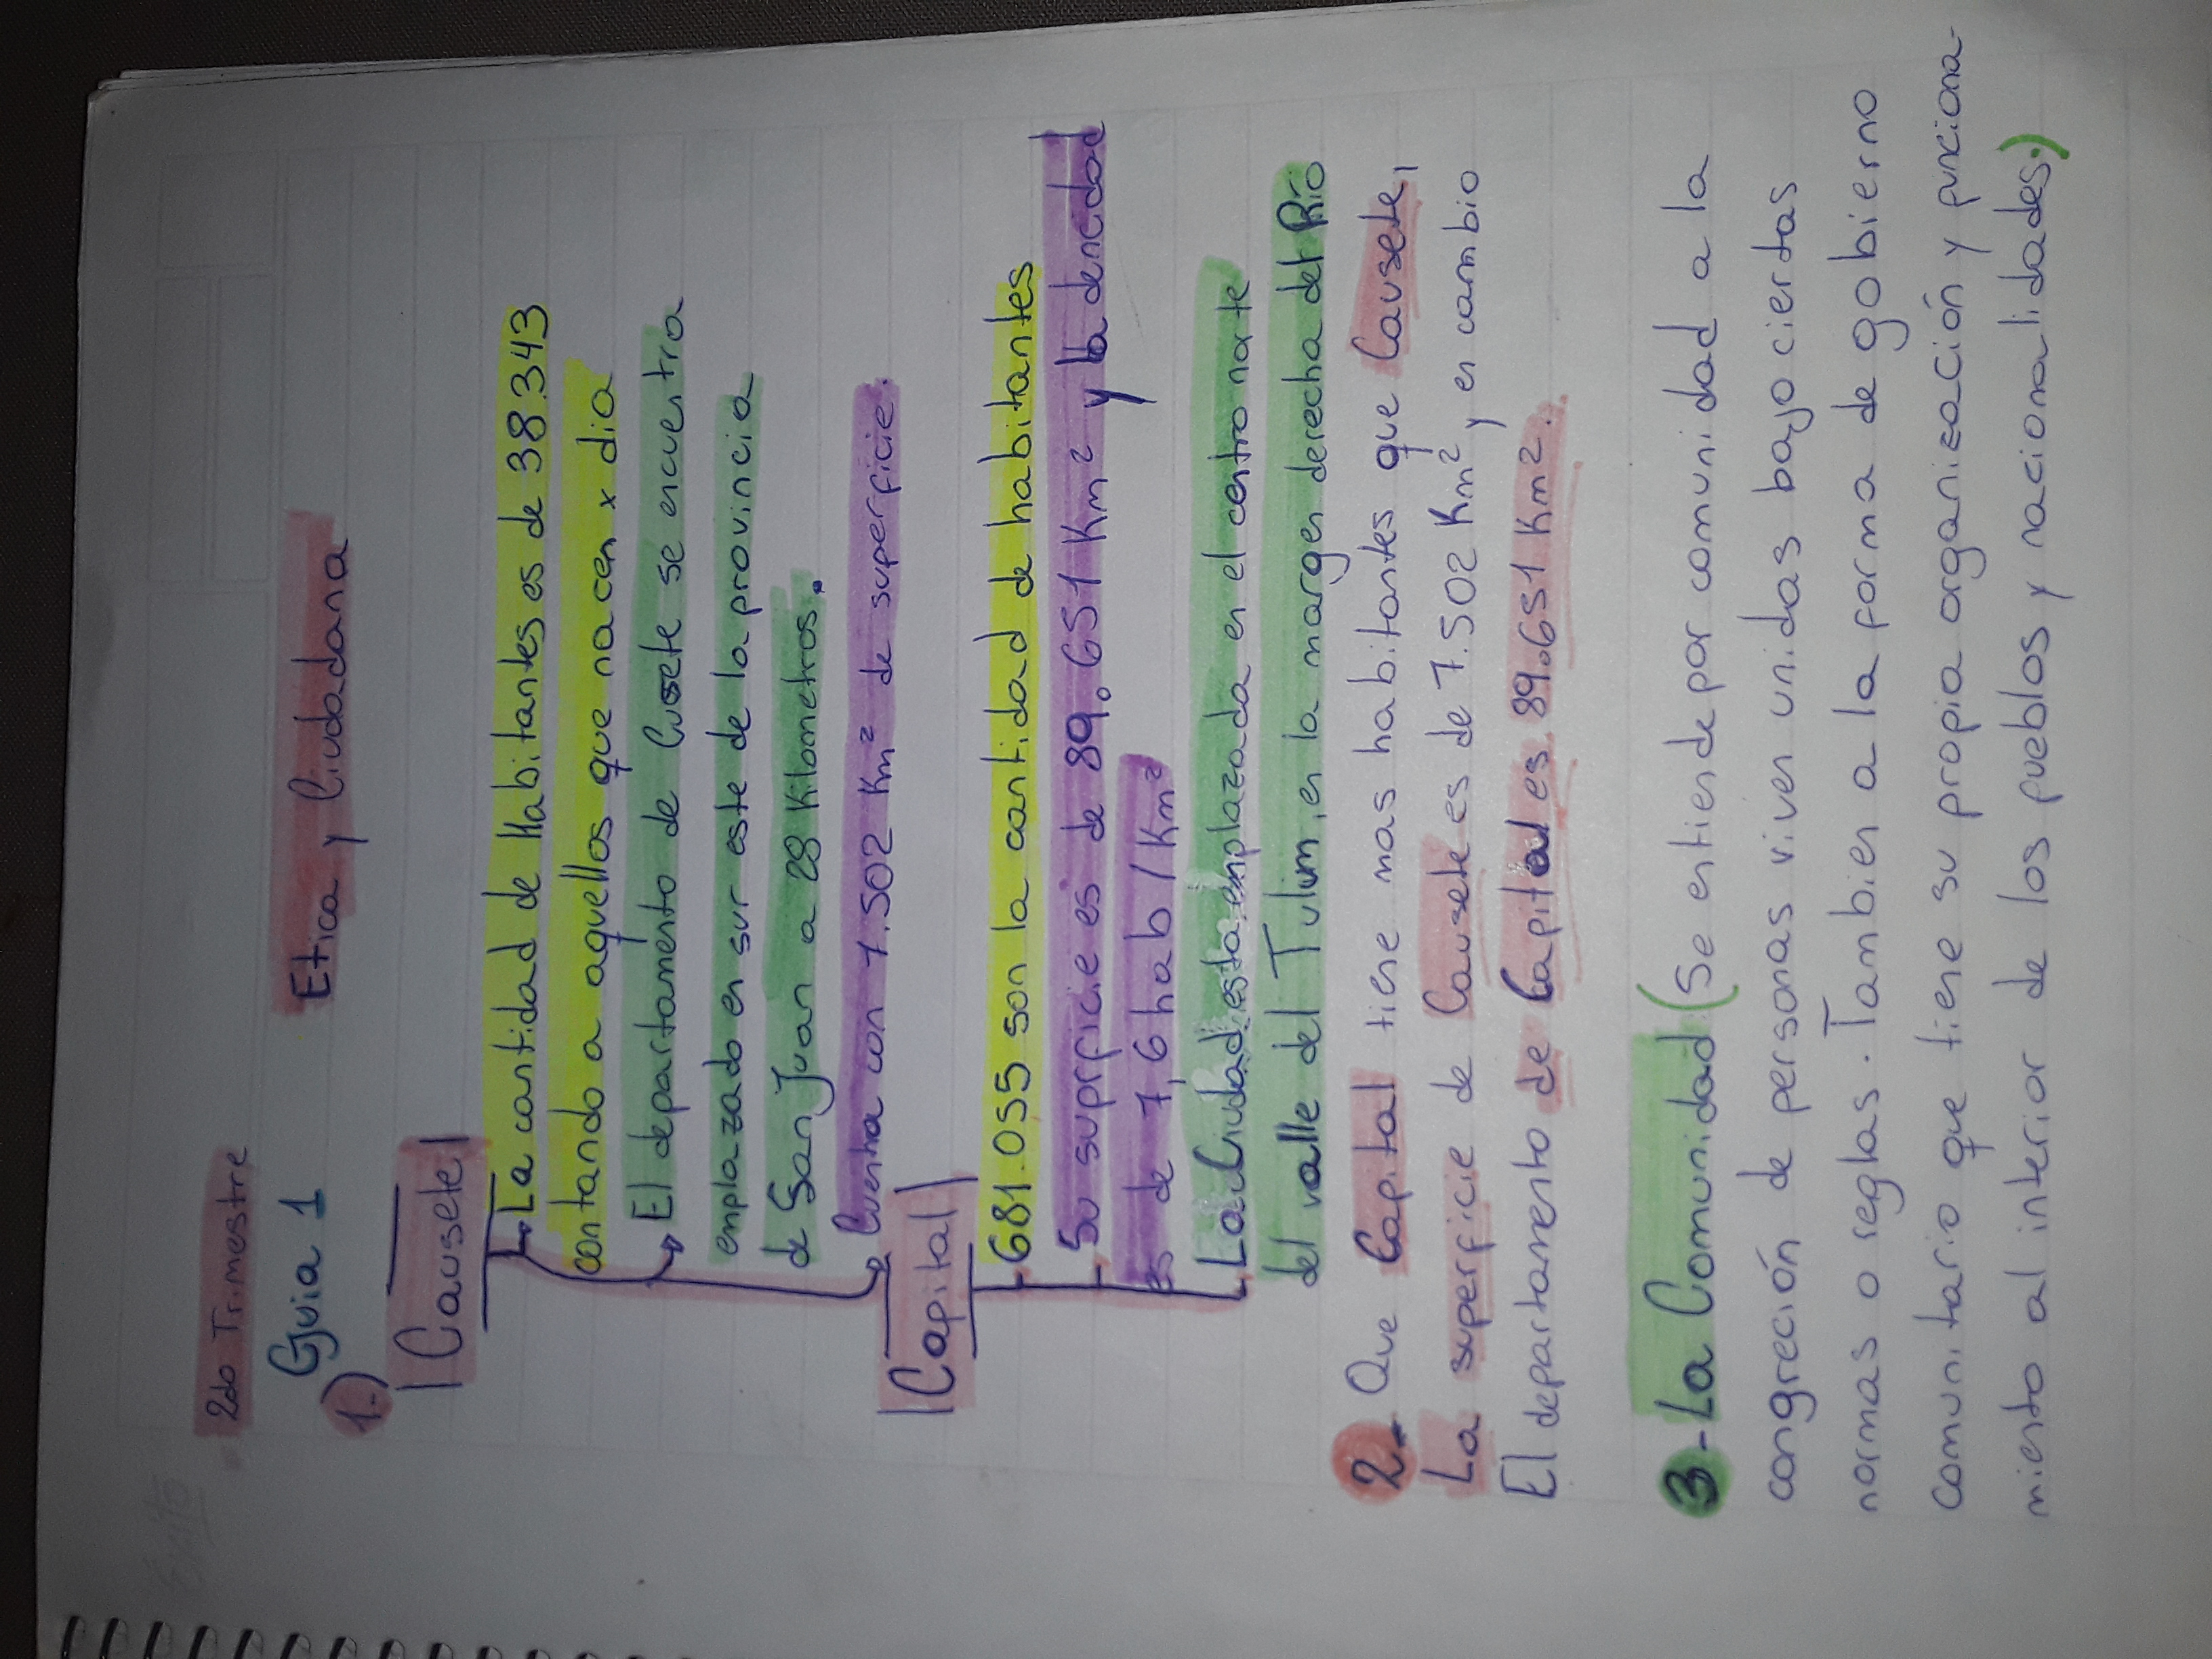 2do Trimestre
Etica y Ciudadana
Guia 1
1-)
Causete
La cantidad de Habitantes es de 38.343
contando a aquellos que nacen x dia
El departamento de Causete se encuentra
emplazado en sur este de la provincia
de San Juan a 28 Kilometros.
Cuenta con 7.502 Km² de superficie.
Capital
681.055 son la cantidad de habitantes
Su suprficie es de 89.651 Km² y la dencidad
es de 7,6 hab/Km²
La Ciudad esta emplazada en el centro norte
del valle del Tulum, en la margen derecha del Río
2- Que Capital tiene mas habitantes que Causete,
La superficie de Causete es de 7.502 Km² y en cambio
El departamento de Capital es 89.651 Km².
3-La Comunidad (Se entiende por comunidad a la
congreción de personas viven unidas bajo ciertas
normas o reglas. Tambien a la forma de gobierno
comunitario que tiene su propia organización y funciona-
miento al interior de los pueblos y nacionalidades.)